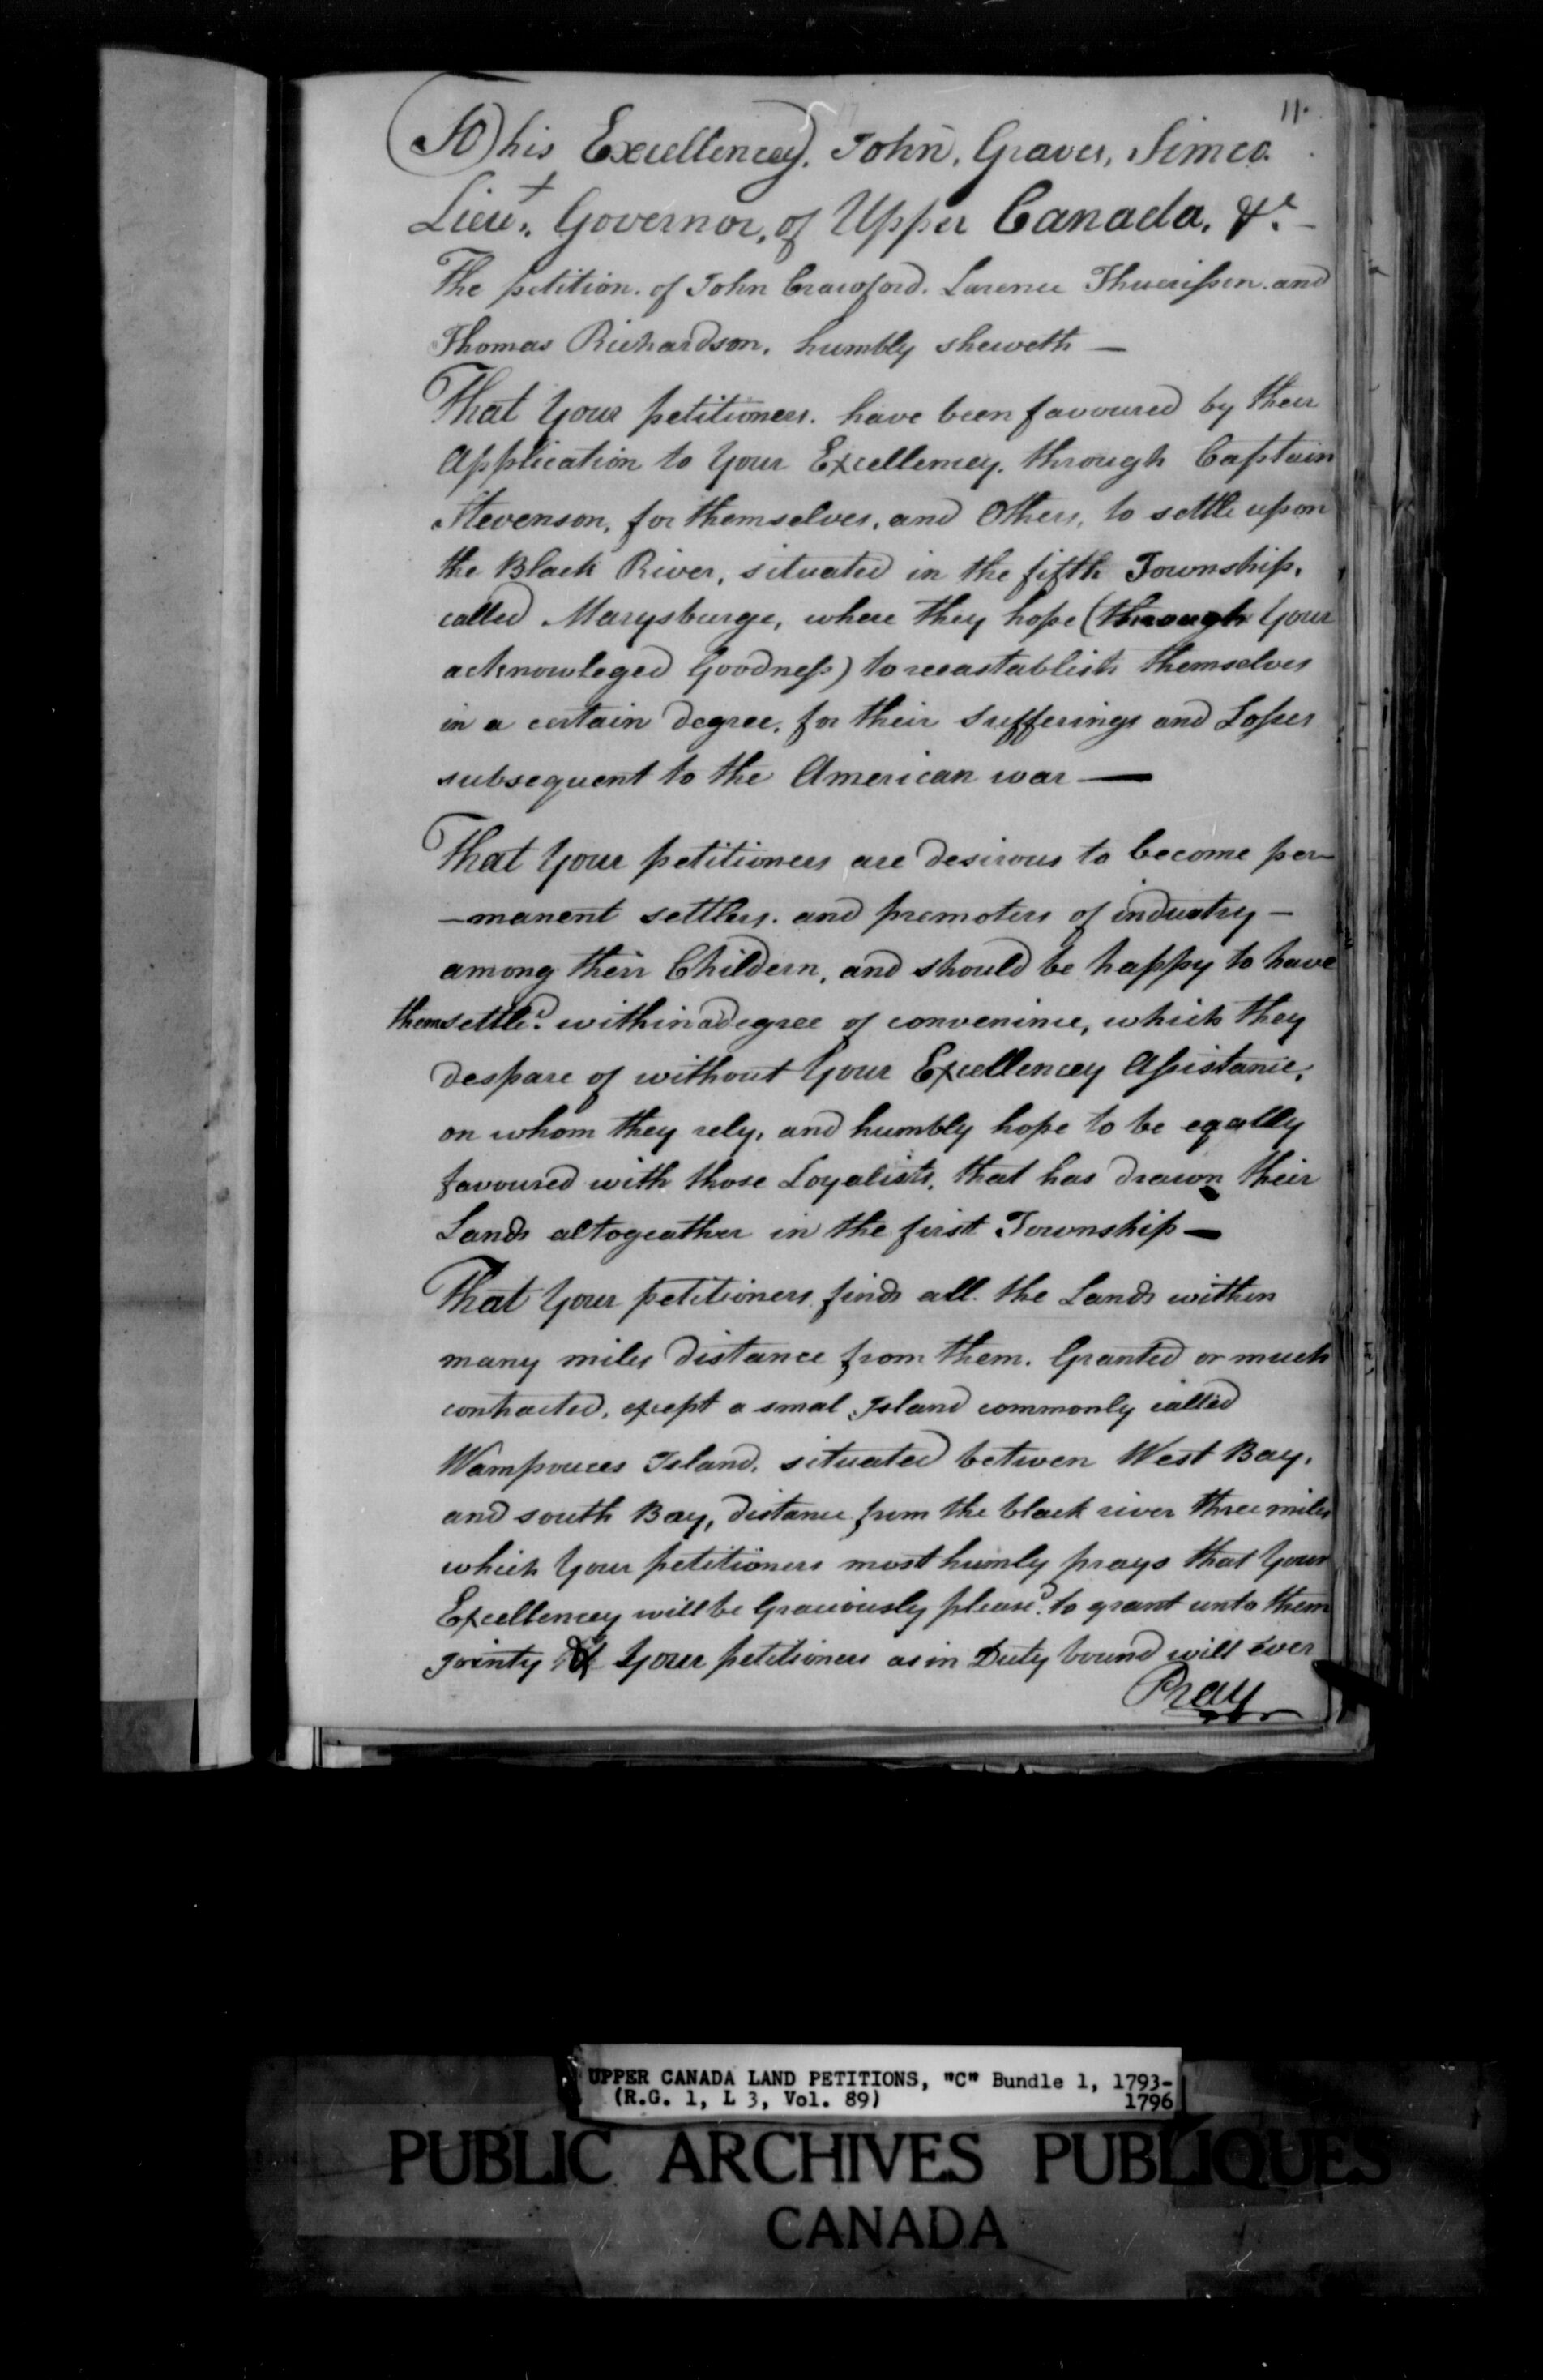 11.
To his Excellencey. John, Graves, Simco.
Lieut. Governor, of Upper Canada, &c. —
The petition. of John Crawford. Larence Thuerissen. and
Thomas Richardson, humbly sheweth —
That Your petitioners. have been favoured by their
Application to Your Excellencey. through Captain
Stevenson, for themselves, and Others, to settle upon
the Black River, situated in the fifth Township,
called Marysburge, where they hope (through Your
acknowleged Goodness) to reeastablish themselves
in a certain degree, for their sufferings and Losses
subsequent to the American war —
That Your petitioners are desirous to become per-
-manent settlers. and premoters of industry —
among their Childern, and should be happy to have
them settled. within a degree of convenince, which they
despare of without Your Excellencey Assistance,
on whom they rely, and humbly hope to be eqally
favoured with those Loyalists, that has drawn their
Lands altogeather in the first Township —
That Your petitioners finds all. the Lands within
many miles distance from them. Granted or much
contracted, except a smal Island commonly called
Wampouces Island, situated betwen West Bay,
and south Bay, distance from the black river three miles
which Your petitioners most humly prays that Your
Excellencey will be Graciously pleased. to grant unto them
Jointy & Your petitioners as in Duty bound will ever
Pray
UPPER CANADA LAND PETITIONS, "C" Bundle 1, 1793-
(R.G. 1, L 3, Vol. 89) 1796
PUBLIC ARCHIVES PUBLIQUES
CANADA